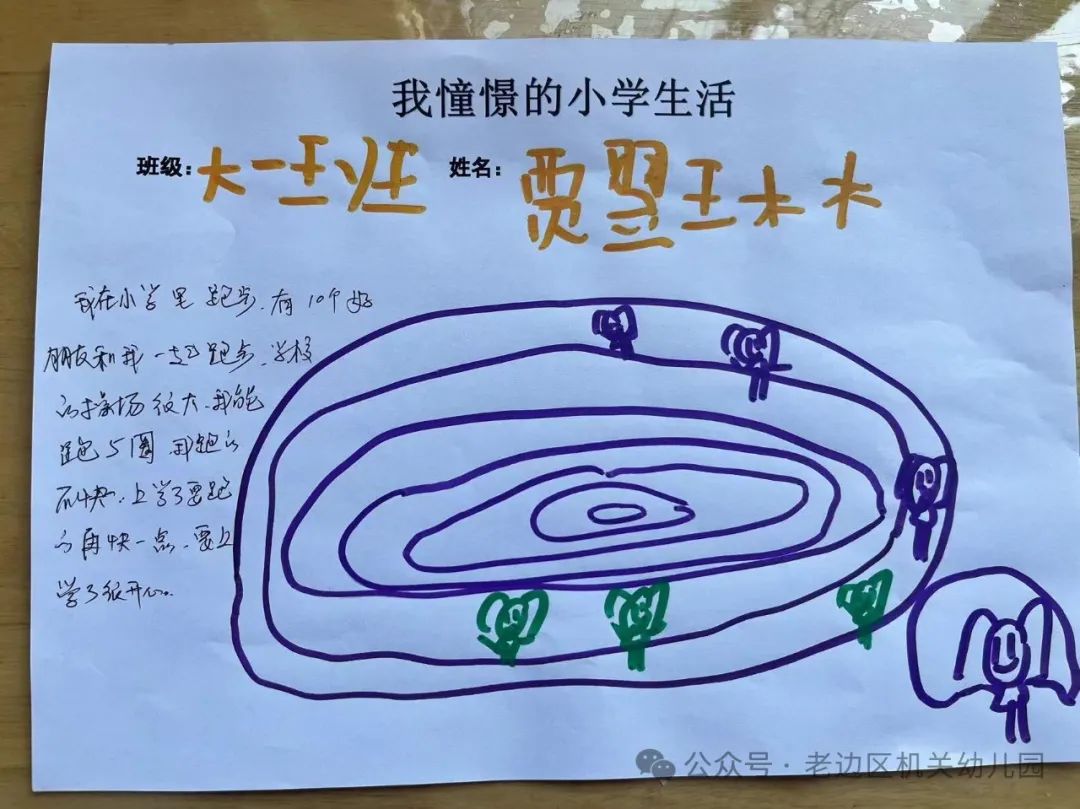 我憧憬的小学生活
班级:大一班 姓名:贾翌琳
我在小学里跑步.有10个好
朋友和我一起跑步.学校
的操场很大.我能
跑5圈.我跑的
不快.上学了要跑
的再快一点.要上
学了很开心。
公众号·老边区机关幼儿园